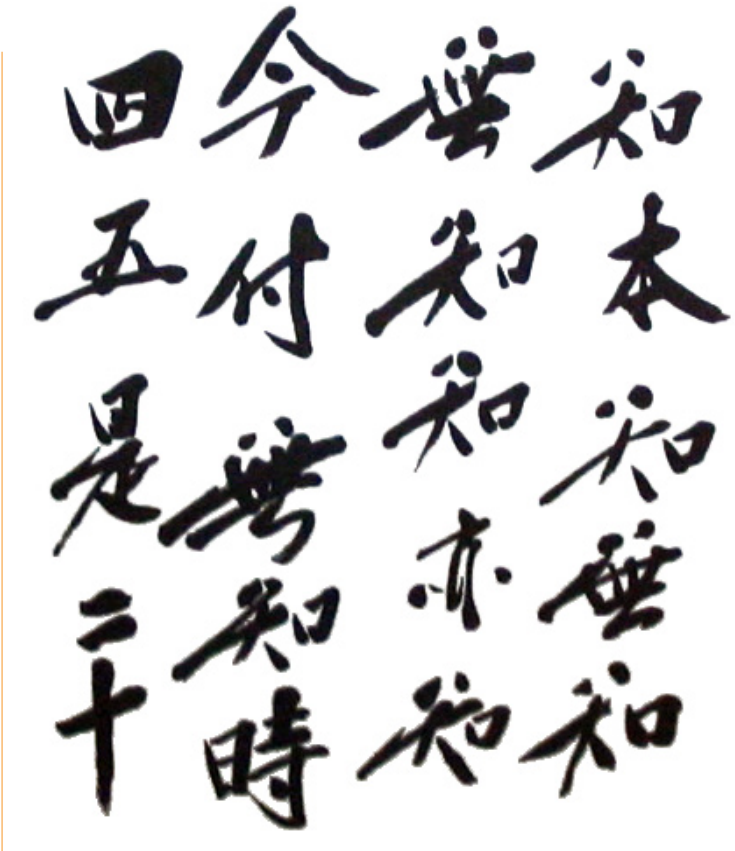 知本知無知
無知知亦知
今付無知時
四五是二十